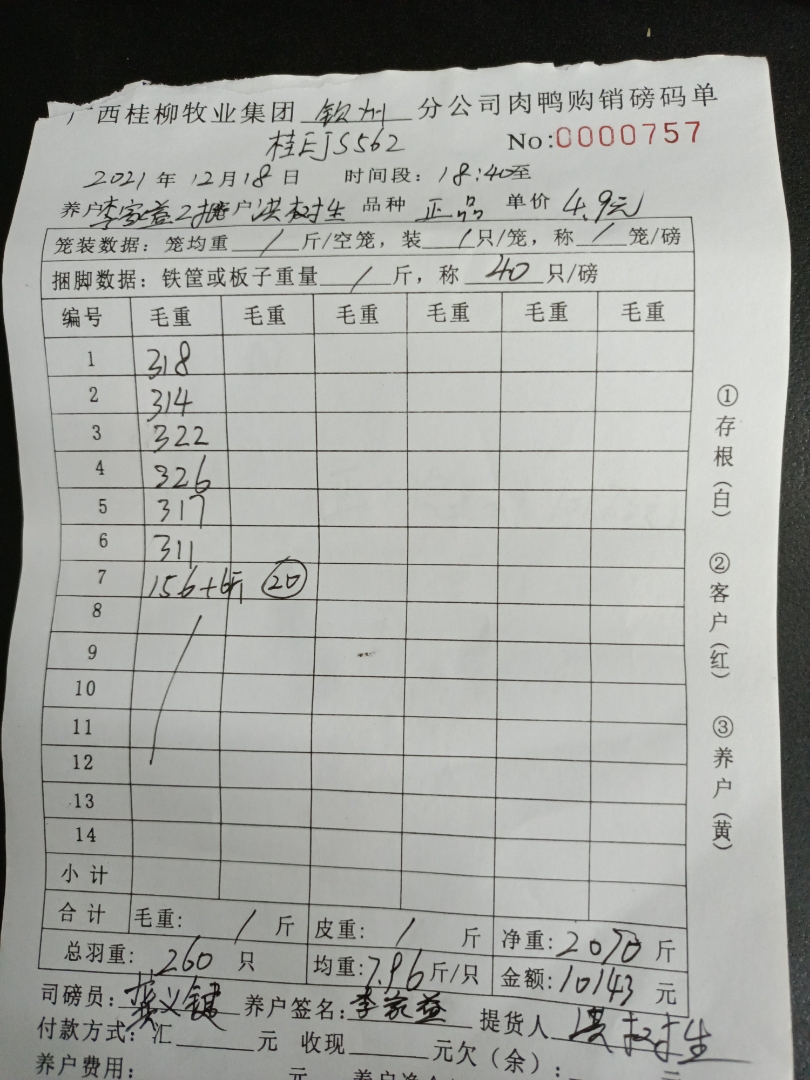 广西桂柳牧业集团 钦州 分公司肉鸭购销磅码单
桂EJS562 No:0000757
2021年12月18日 时间段:18:40至
养户李家益 户洪树生 品种 正品 单价 4.9元
笼装数据:笼均重 / 斤/空笼,装 / 只/笼,称 / 笼/磅
捆脚数据:铁筐或板子重量 / 斤,称 40 只/磅
编号 毛重 毛重 毛重 毛重 毛重 毛重
1 318
2 314
3 322
4 326
5 317
6 311
7 156+6斤 20
8
9
10
11
12
13
14
小计
合计 毛重: / 斤 皮重: / 斤 净重:2070 斤
总羽重:260 只 均重:7.96斤/只 金额:10143 元
司磅员:龚义键 养户签名:李家益 提货人 洪树生
付款方式:汇 元 收现 元欠(余):
养户费用: 元
①存根(白) ②客户(红) ③养户(黄)